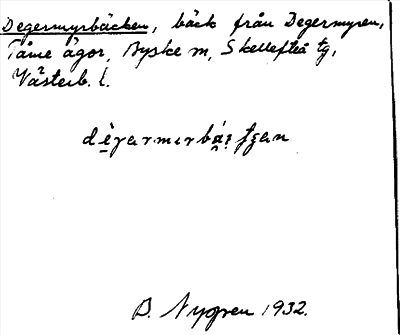 Degermyrbäcken, bäck från Degermyren,
Tåme ägor, Byske sn, Skellefteå tg,
Västerb. l.
B. Nygren 1932.